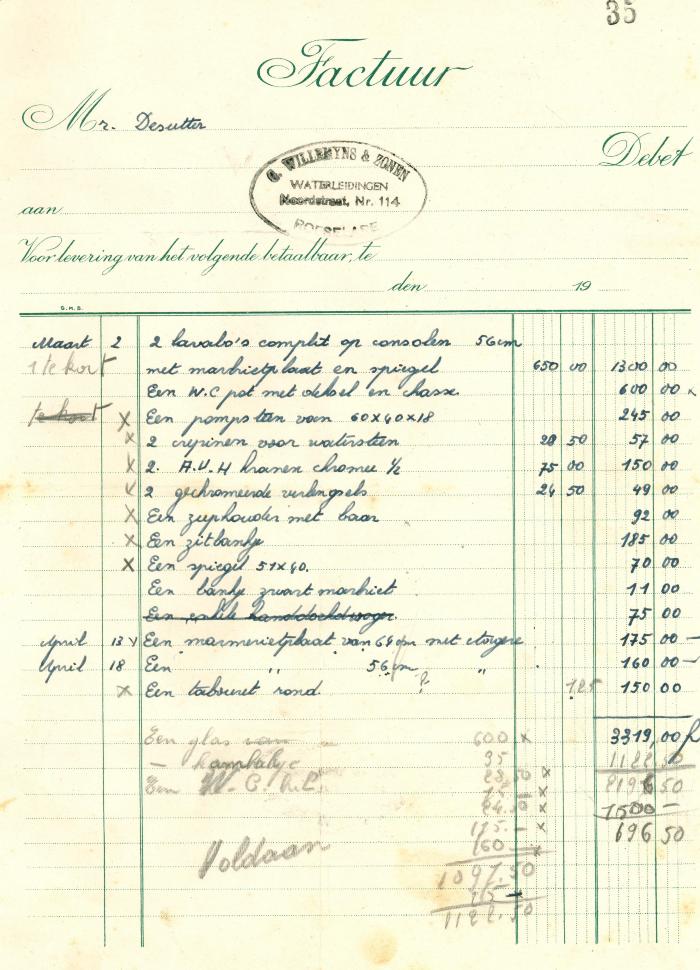 35
Factuur
Mr. Desutter
G. WILLEMYNS & ZONEN
WATERLEIDINGEN
Noordstraat, Nr. 114
ROESELARE
Debet
aan
Voor levering van het volgende betaalbaar, te
den 19
G.M.B.
Maart 2 2 lavabo's complit op consolen 56cm
1 te kort met marbrietplaat en spiegel 650 00 1300 00
Een W.C pot met deksel en chasse 600 00 x
te kort x Een pompsteen van 60x40x18 245 00
x 2 crepinen voor watersteen 28 50 57 00
x 2. A.U.H kranen chromee 1/2 75 00 150 00
x 2 gechromeerde verlengsels 24 50 49 00
x Een zeephouder met baar 92 00
x Een zitbankje 185 00
x Een spiegel 51x40. 70 00
Een bankje zwart marbriet 11 00
Een handdoekdroger. 75 00
April 13 Een marmerietplaat van 64 cm met etagere 175 00 —
April 18 Een " 56cm " 160 00 —
x Een tabouret rond. ? 125 150 00
3319,00
Een glas 600 x 1122 50
— 35 2196 50
Een W.C. 28,50 x 1500 —
24.50 x 696 50
175.— x
Voldaan 160 — x
1097.50
25 —
1122.50